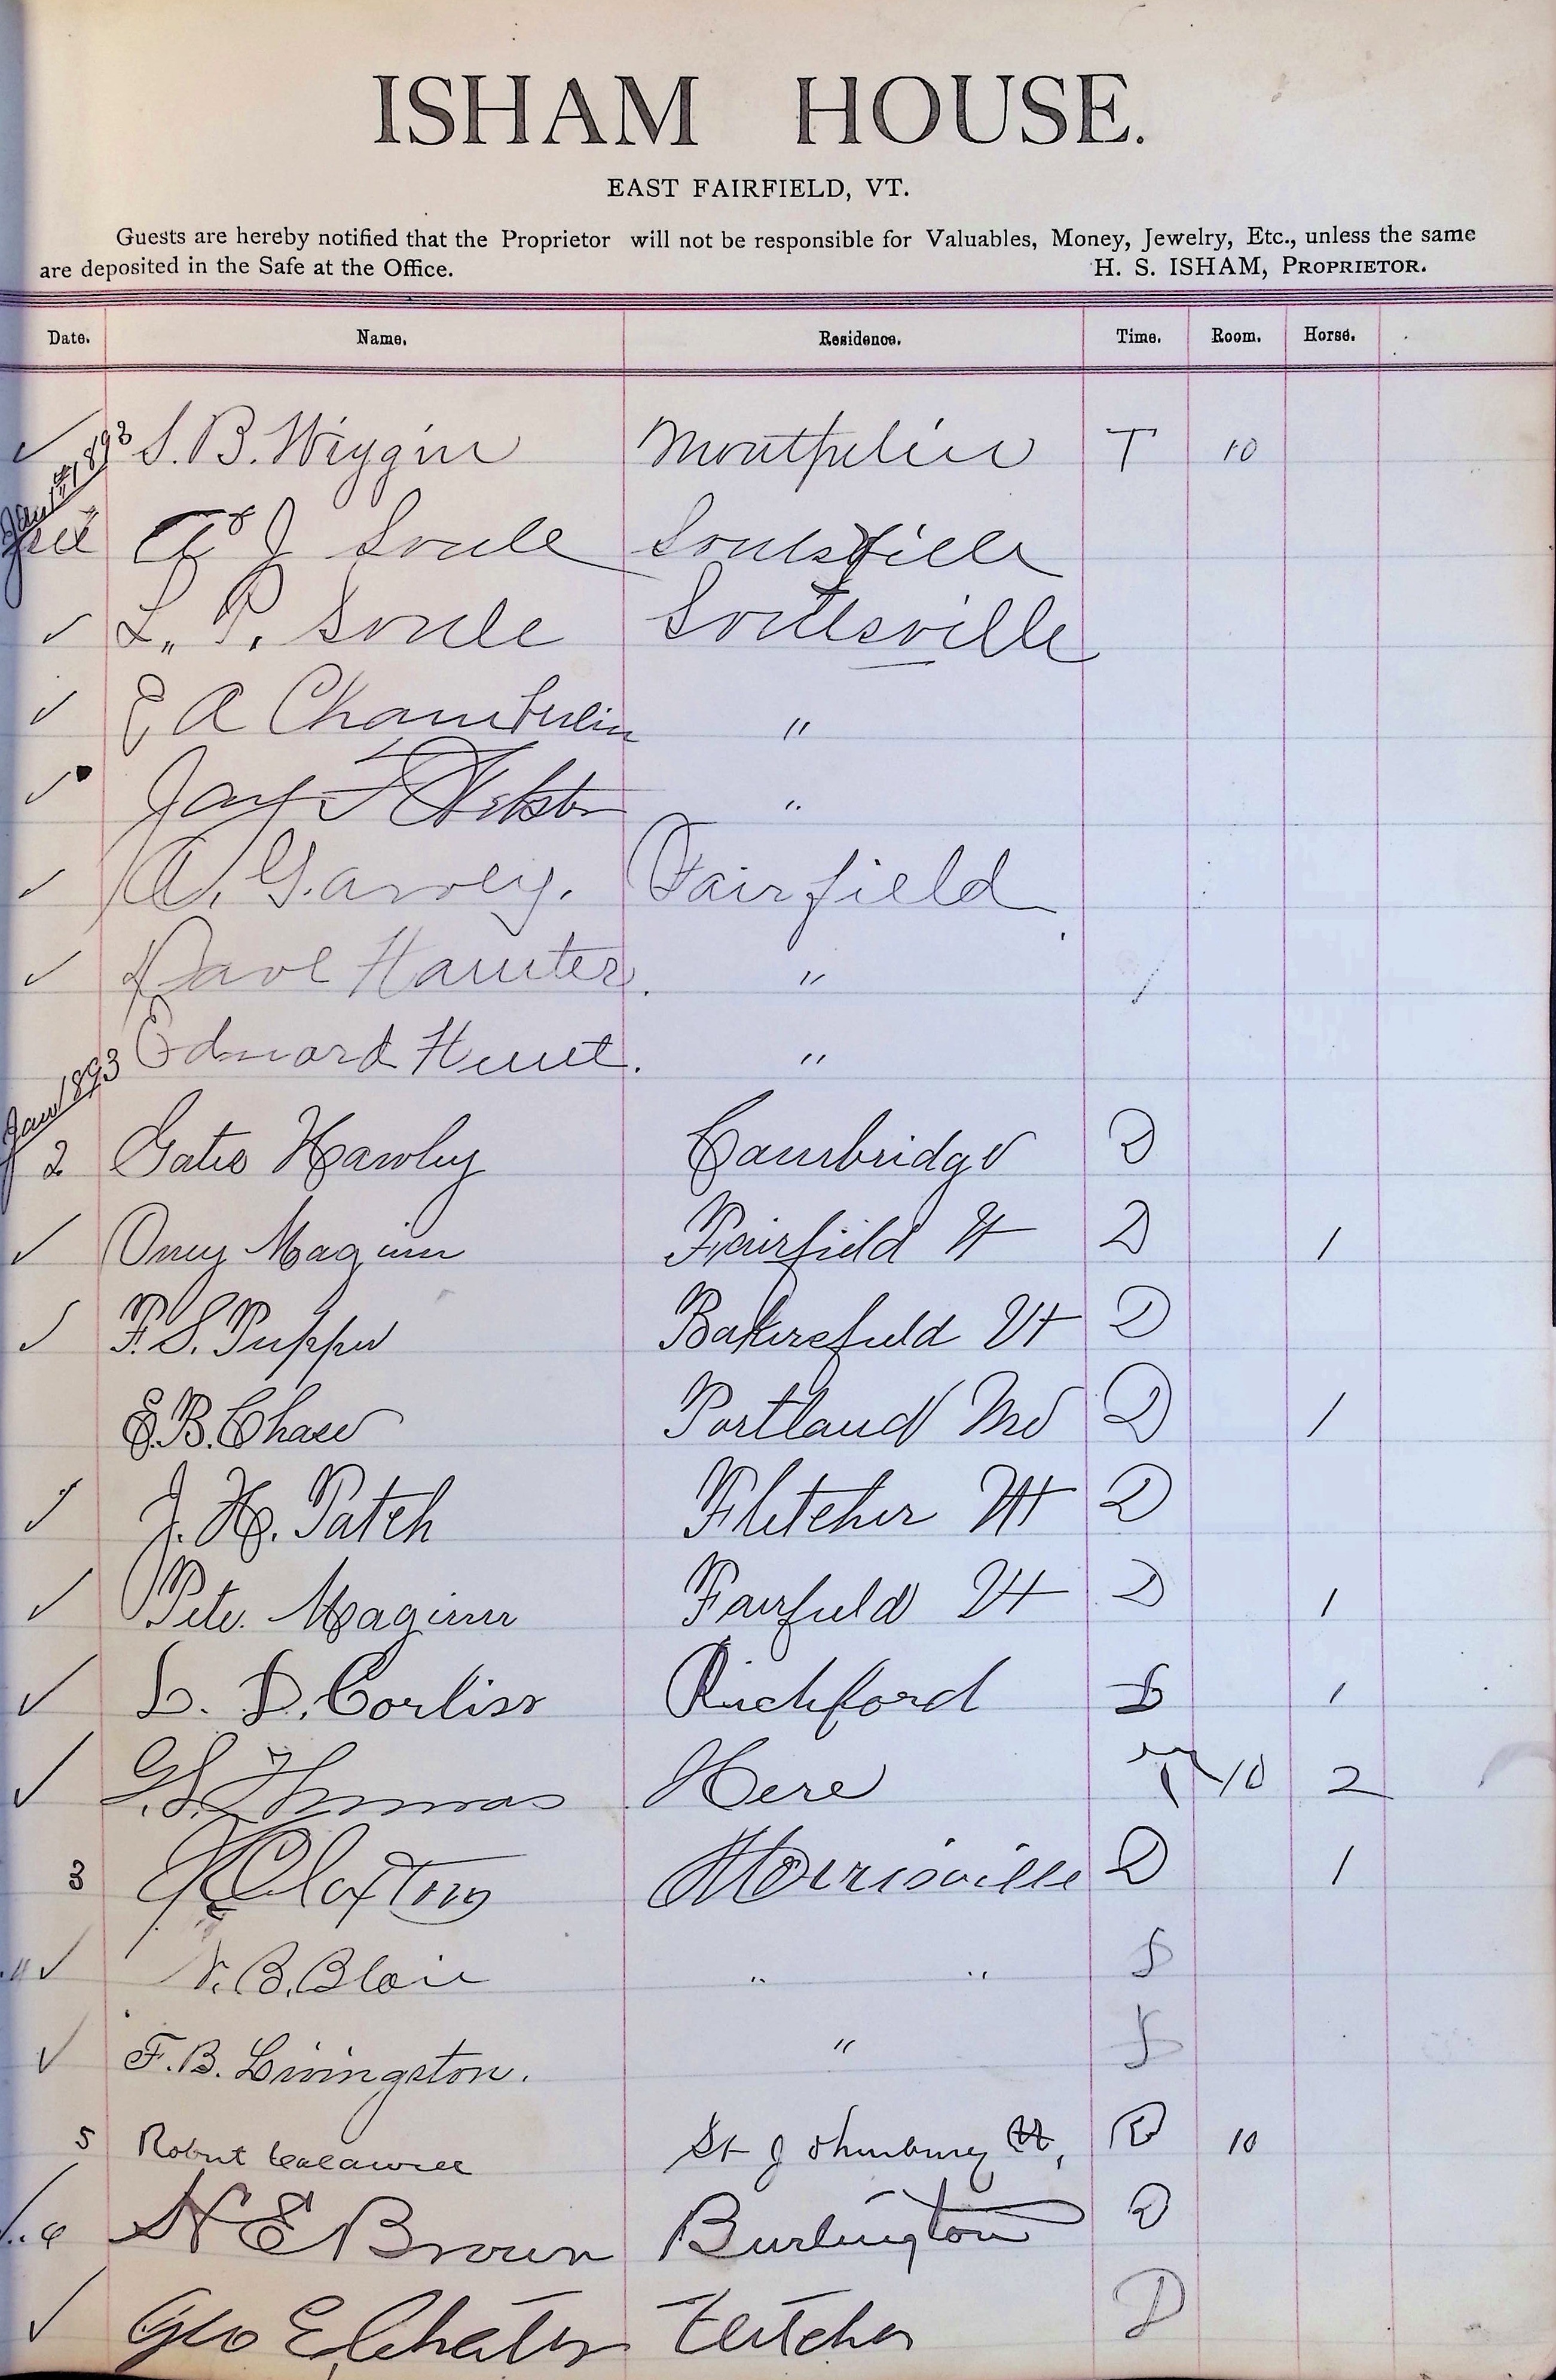 ISHAM HOUSE.
EAST FAIRFIELD, VT.
Guests are hereby notified that the Proprietor will not be responsible for Valuables, Money, Jewelry, Etc., unless the same
are deposited in the Safe at the Office. H. S. ISHAM, PROPRIETOR.
Date. Name. Residence. Time. Room. Horse.
Jan 1st 1893 S. B. Wiggin Montpelier T 10
A J Soule Soulsville
L. P. Soule Soulsville
E A Chamberlin "
Jay F Webster "
A. Garvey. Fairfield
Dave "
Edward Hunt. "
Jan 1893
2 Gates Hawley Cambridge D
Maginn Fairfield Vt D 1
F. S. Tupper Bakersfield Vt D
E. B. Chase Portland Me D 1
J. H. Patch Fletcher Vt D
Pete. Maginn Fairfield Vt D 1
L. D. Corliss Richford S 1
G. S. Thomas Here T 10 2
3 Claxton Morrisville D 1
" B. Blair " " S
F. B. Livingston. " S
5 Robert St Johnsbury Vt, D 10
6 N E Brown Burlington D
Geo E Fletcher D